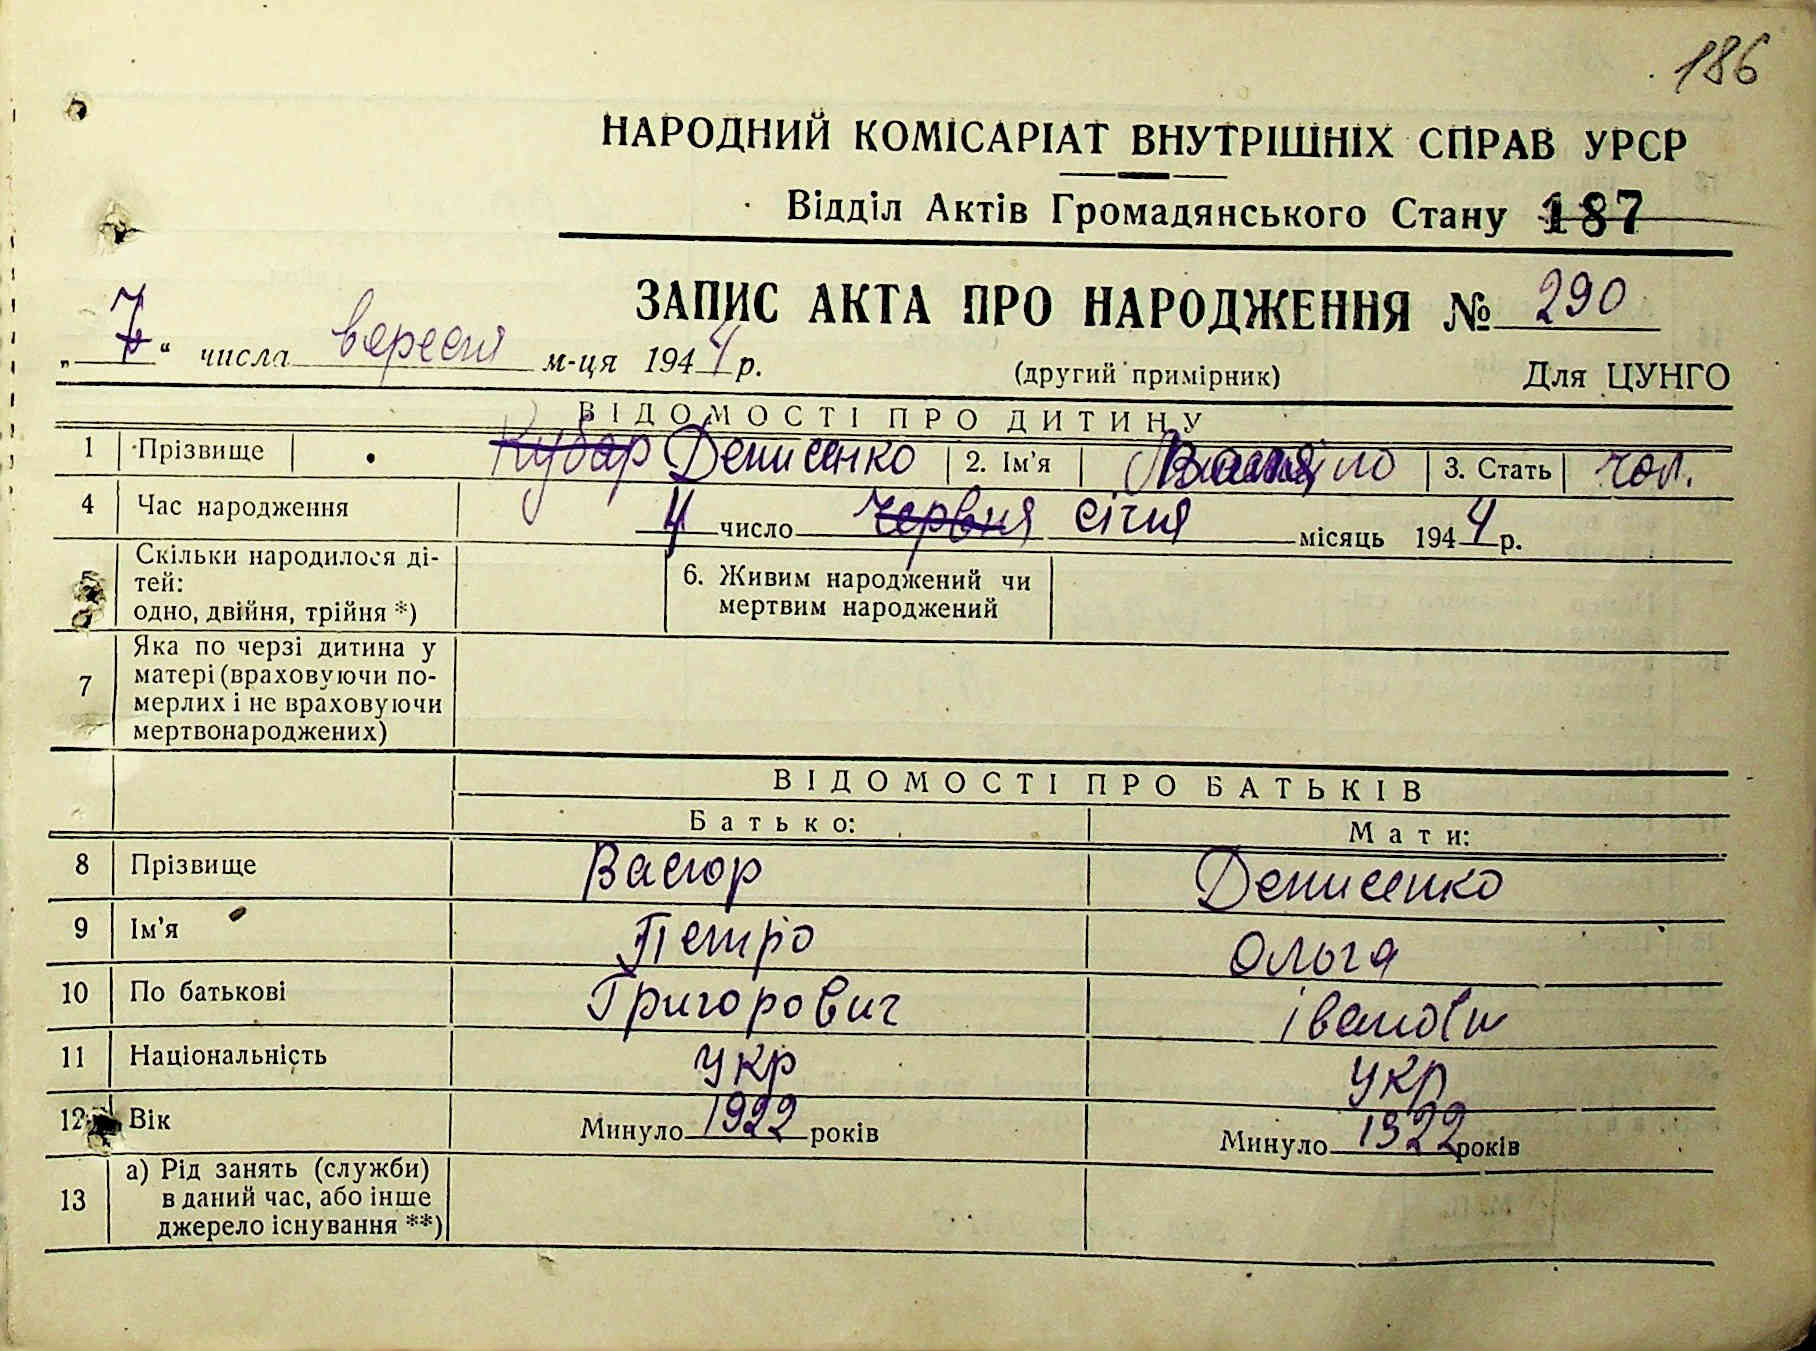 186
НАРОДНИЙ КОМІСАРІАТ ВНУТРІШНІХ СПРАВ УРСР
Відділ Актів Громадянського Стану 187
ЗАПИС АКТА ПРО НАРОДЖЕННЯ № 290
„ 7 “ числа вересня м-ця 1944 р. (другий примірник) Для ЦУНГО
ВІДОМОСТІ ПРО ДИТИНУ
1 Прізвище Кубар Денисенко 2. Ім'я 3. Стать чол.
4 Час народження 4 число червня січня місяць 1944 р.
5 Скільки народилося ді-
тей:
одно, двійня, трійня *)
6. Живим народжений чи
мертвим народжений
7 Яка по черзі дитина у
матері (враховуючи по-
мерлих і не враховуючи
мертвонароджених)
ВІДОМОСТІ ПРО БАТЬКІВ
Батько: Мати:
8 Прізвище Денисенко
9 Ім'я Петро Ольга
10 По батькові Григорович
11 Національність укр укр
12 Вік Минуло 1922 років Минуло 1922 років
13 а) Рід занять (служби)
в даний час, або інше
джерело існування **)